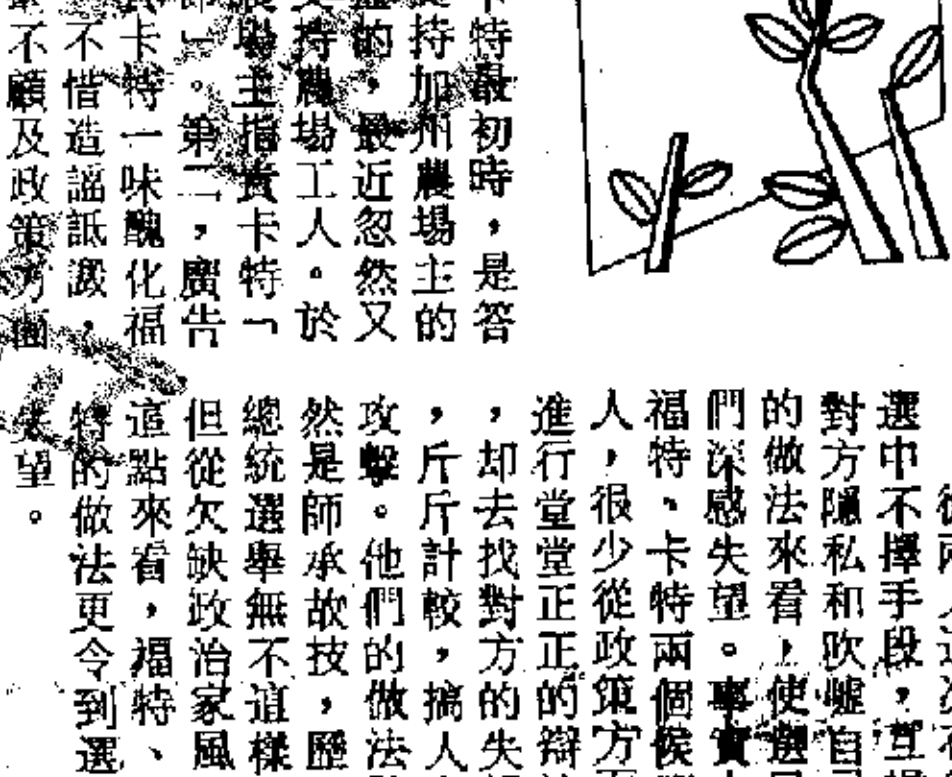 卡特最初時，是答
持加州農場主的
的，最近忽然又
支持農場工人。於
農場主指責卡特「
」。第二，廣告
卡特一味醜化福
不惜造謠詆譭，
不顧及政策方面
選中不擇手段，互
對方隱私和吹噓自
的做法來看，使選
們深感失望。事實
福特、卡特兩個候
人，很少從政策方
進行堂堂正正的辯
，却去找對方的失
，斤斤計較，搞人
攻擊。他們的做法
然是師承故技，歷
總統選舉無不這樣
但從欠缺政治家風
這點來看，福特、
特的做法更令到選
失望。